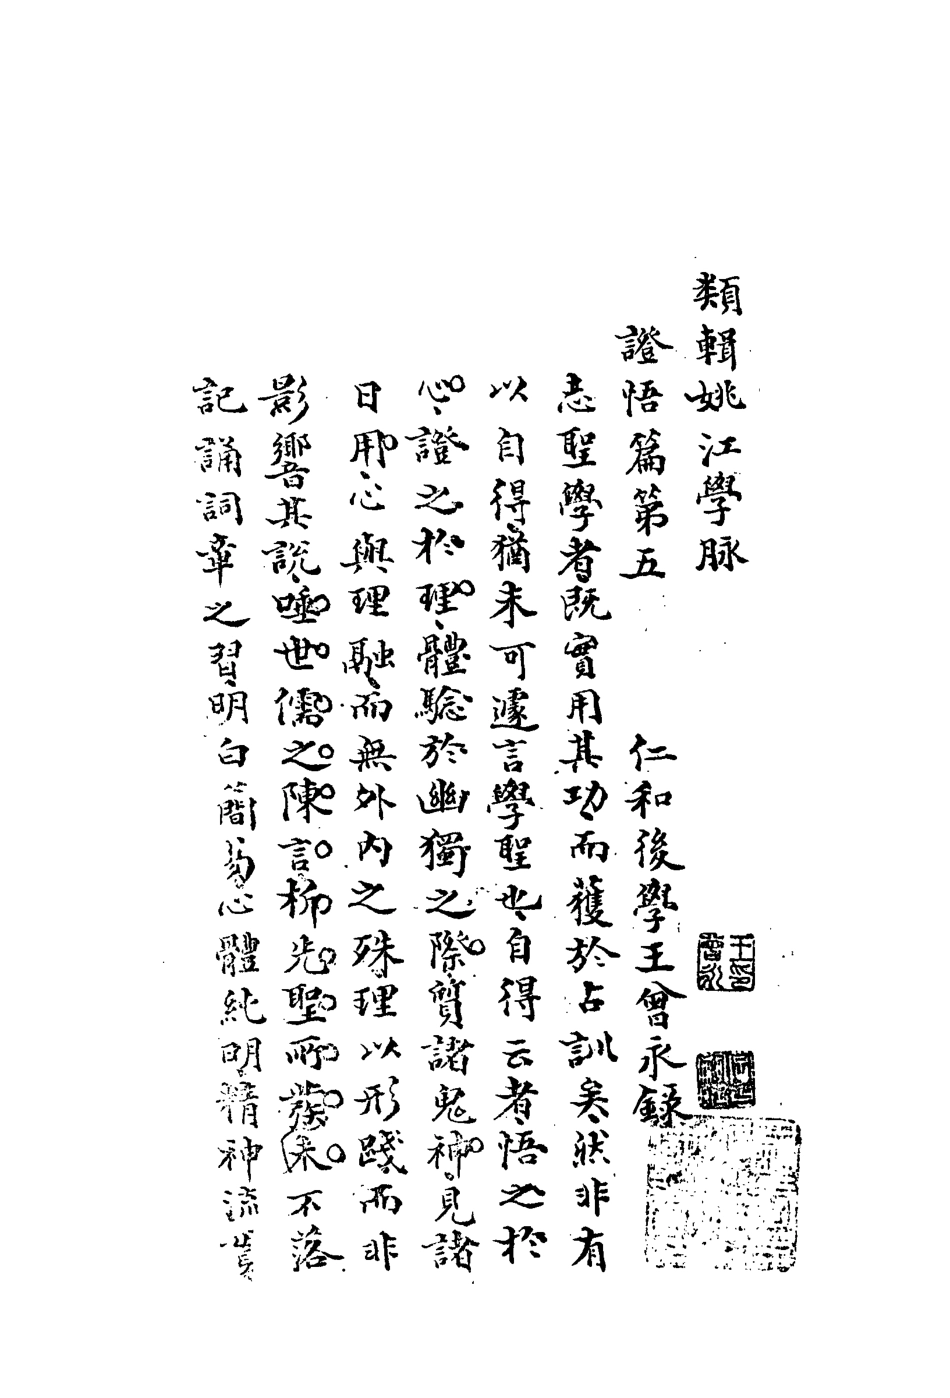 類輯姚江學脉
證悟篇第五
仁和後學王曾永錄
志聖學者既實用其功而獲於占訓矣然非有
以自得猶未可遽言學聖也自得云者悟之於
心證之於理體驗於幽獨之際質諸鬼神見諸
日用心與理融而無外內之殊理以形踐而非
影響其說唾世儒之陳言柳先聖所發未不落
記誦詞章之習明白簡易心體純明精神流貫